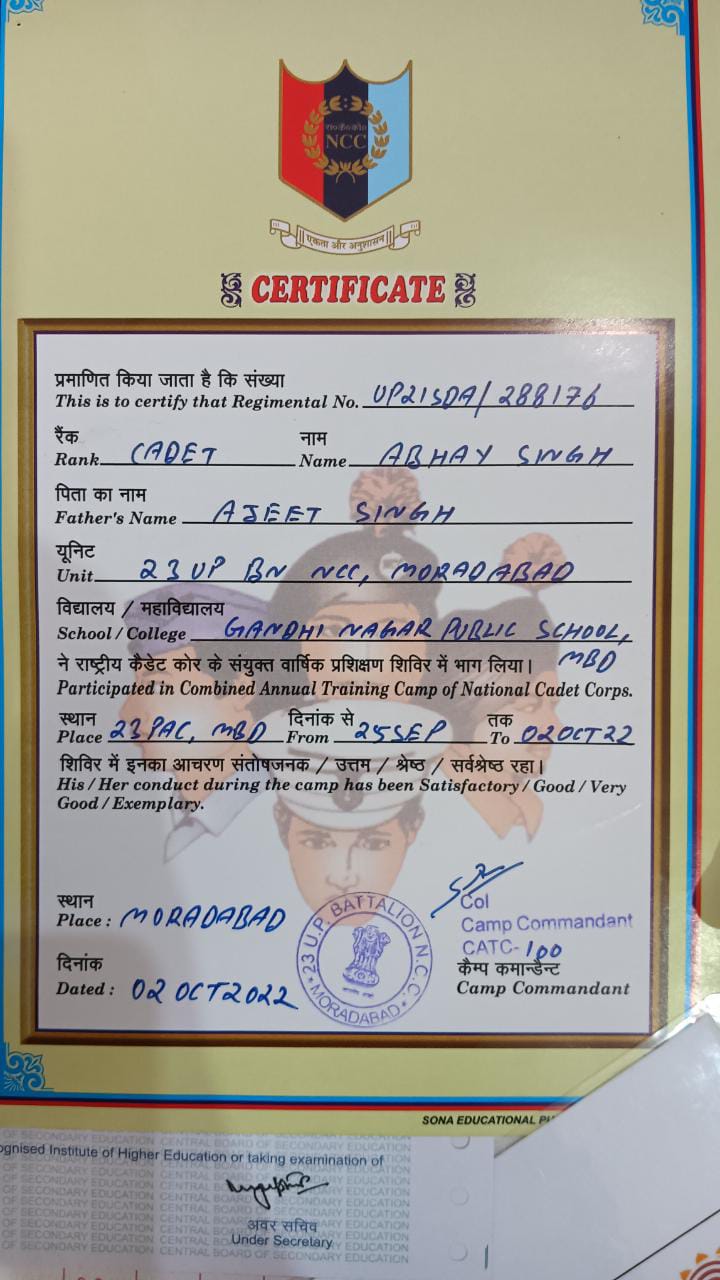 रा०कै०को०
NCC
एकता और अनुशासन
CERTIFICATE
प्रमाणित किया जाता है कि संख्या
This is to certify that Regimental No. UP21SDA/288176
रैंक नाम
Rank CADET Name ABHAY SINGH
पिता का नाम
Father's Name AJEET SINGH
यूनिट
Unit 23 UP BN NCC, MORADABAD
विद्यालय / महाविद्यालय
School / College GANDHI NAGAR PUBLIC SCHOOL,
ने राष्ट्रीय कैडेट कोर के संयुक्त वार्षिक प्रशिक्षण शिविर में भाग लिया। MBD
Participated in Combined Annual Training Camp of National Cadet Corps.
स्थान दिनांक से तक
Place 23 PAC, MBD From 25 SEP To 02 OCT 22
शिविर में इनका आचरण संतोषजनक / उत्तम / श्रेष्ठ / सर्वश्रेष्ठ रहा।
His / Her conduct during the camp has been Satisfactory / Good / Very
Good / Exemplary.
स्थान
Place : MORADABAD
Col
Camp Commandant
CATC-100
दिनांक
Dated : 02 OCT 2022
कैम्प कमान्डैन्ट
Camp Commandant
23 U.P. BATTALION N.C.C.
MORADABAD
SONA EDUCATIONAL
OF SECONDARY EDUCATION CENTRAL BOARD OF SECONDARY EDUCATION
ognised Institute of Higher Education or taking examination of
अवर सचिव
Under Secretary
OF SECONDARY EDUCATION CENTRAL BOARD OF SECONDARY EDUCATION